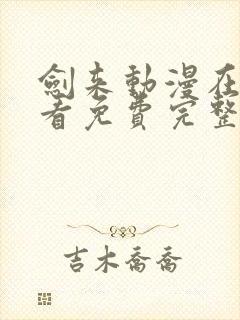 劍来動漫在
看免費完整
吉木喬喬